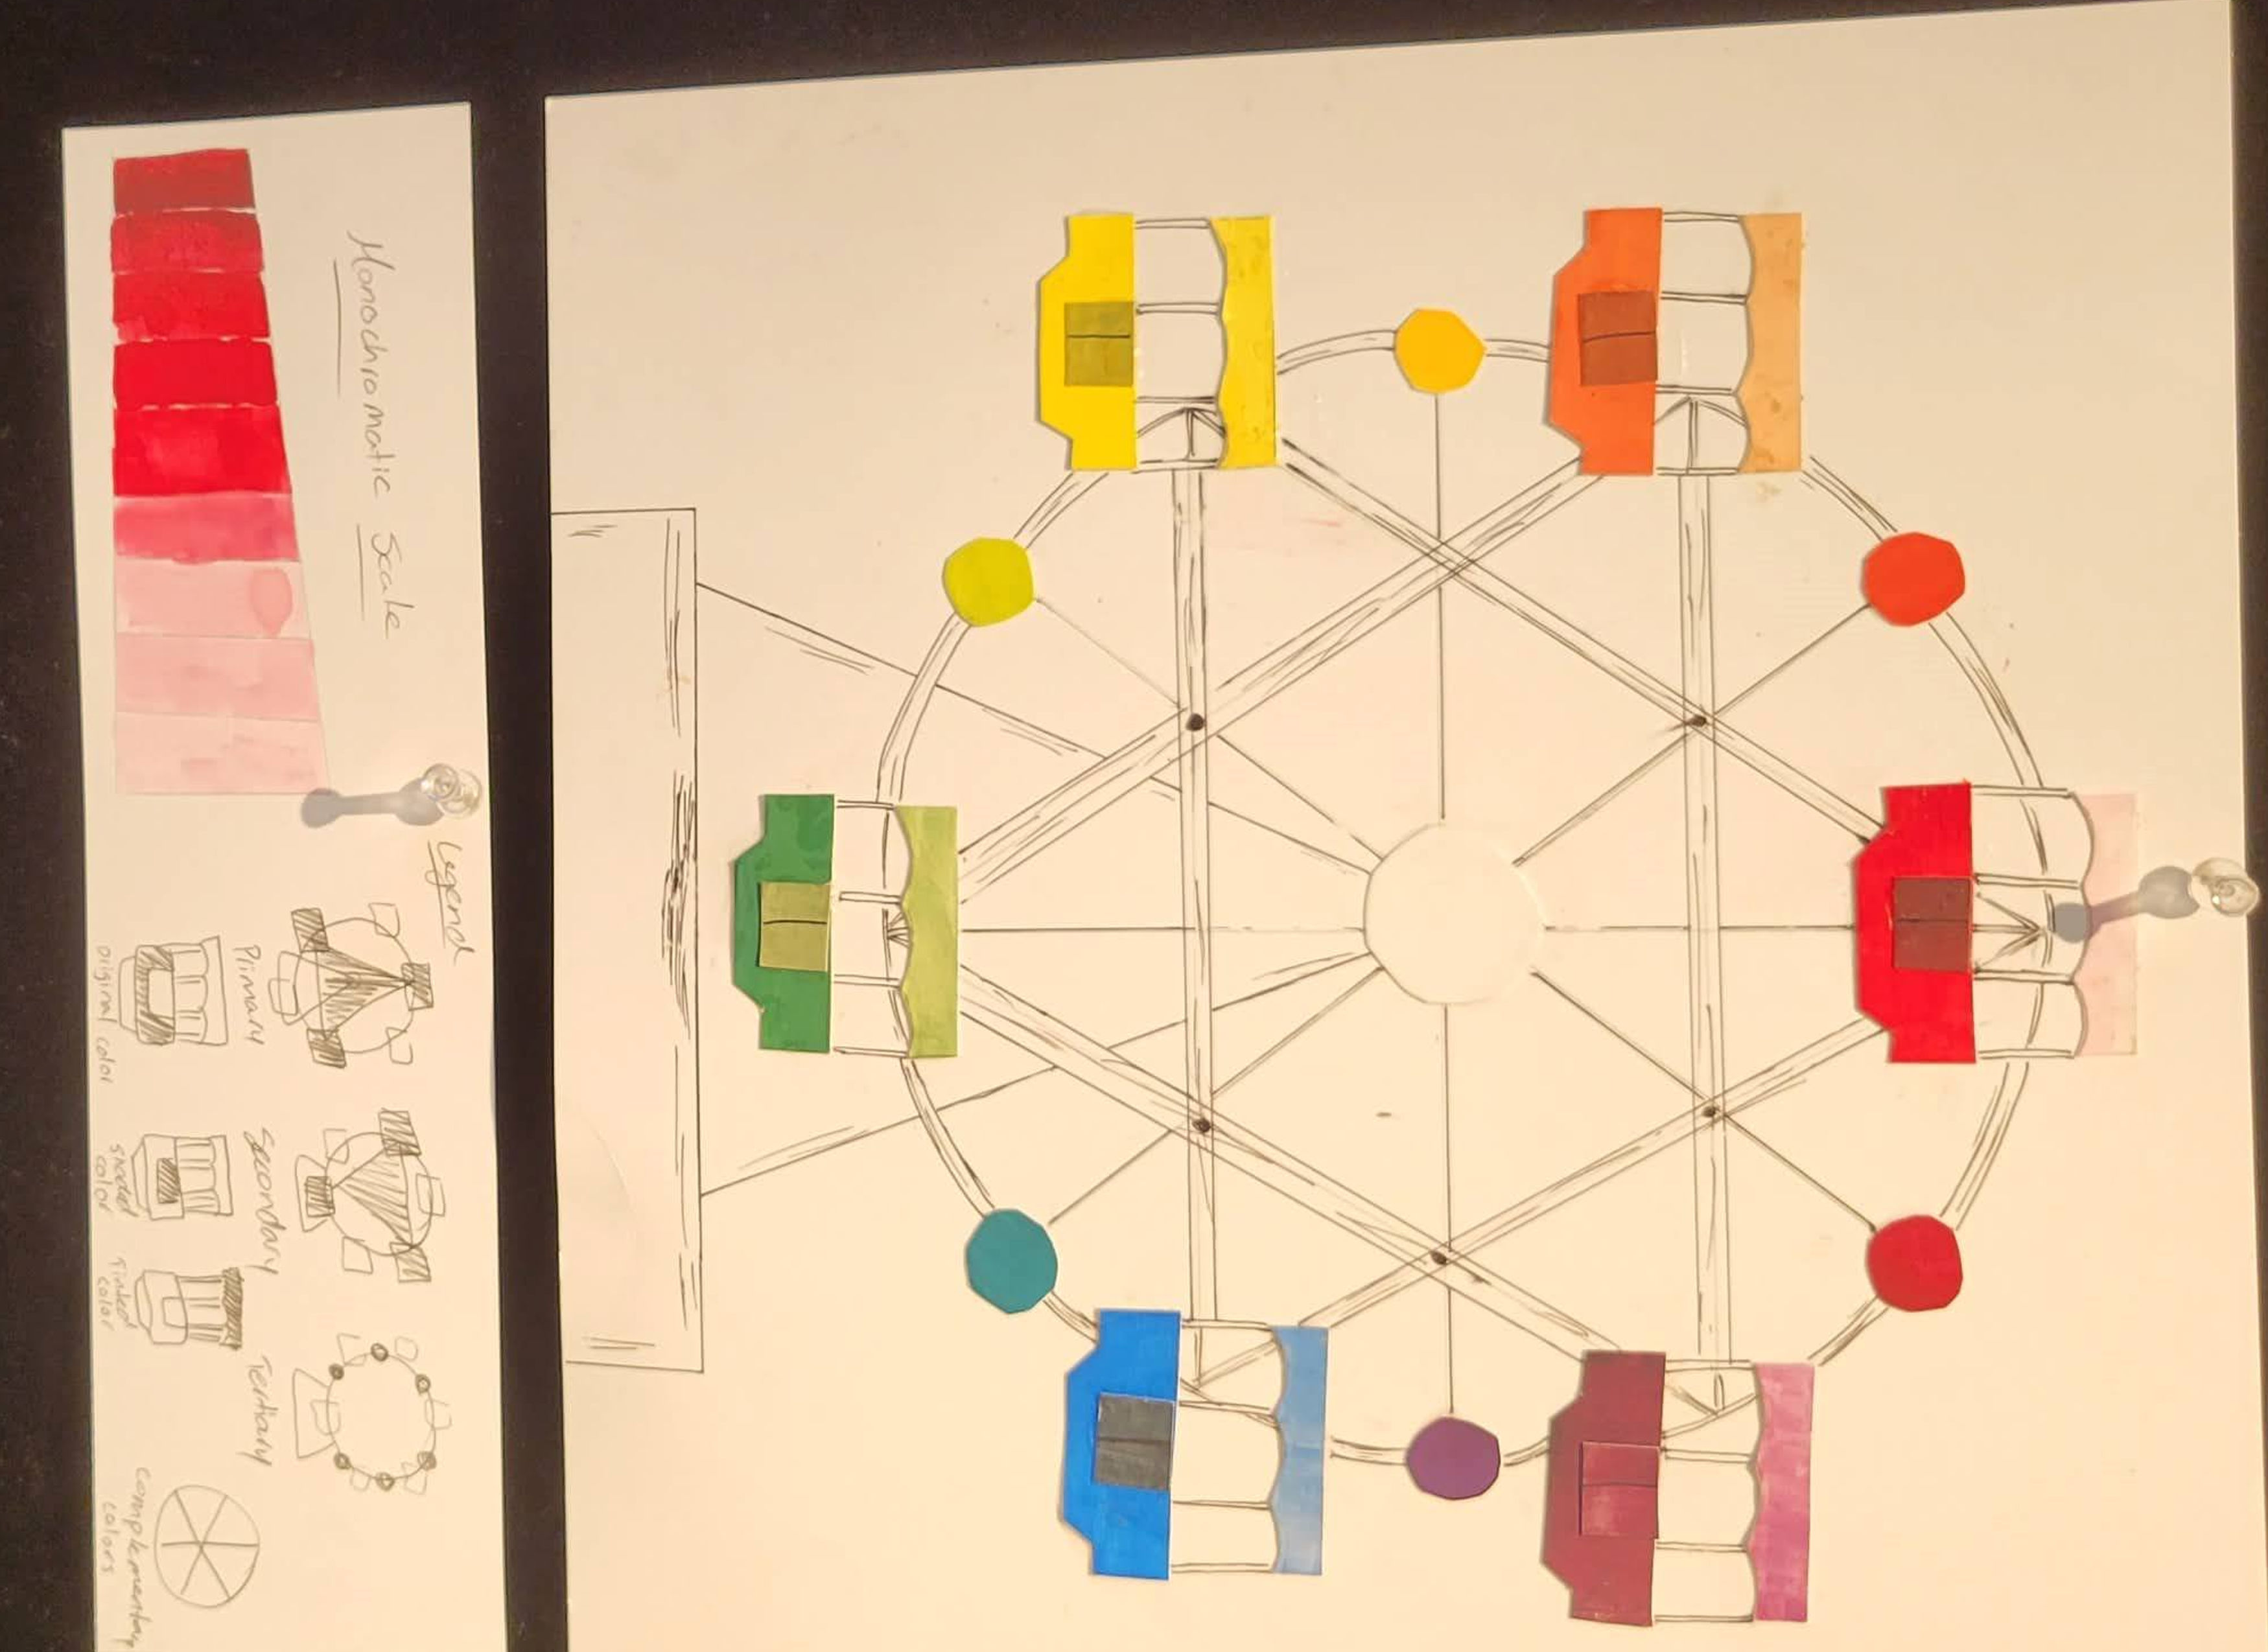 Monochromatic Scale
Legend
Primary
Secondary
Tertiary
original color
shaded
color
Tinted
color
complementary
colors